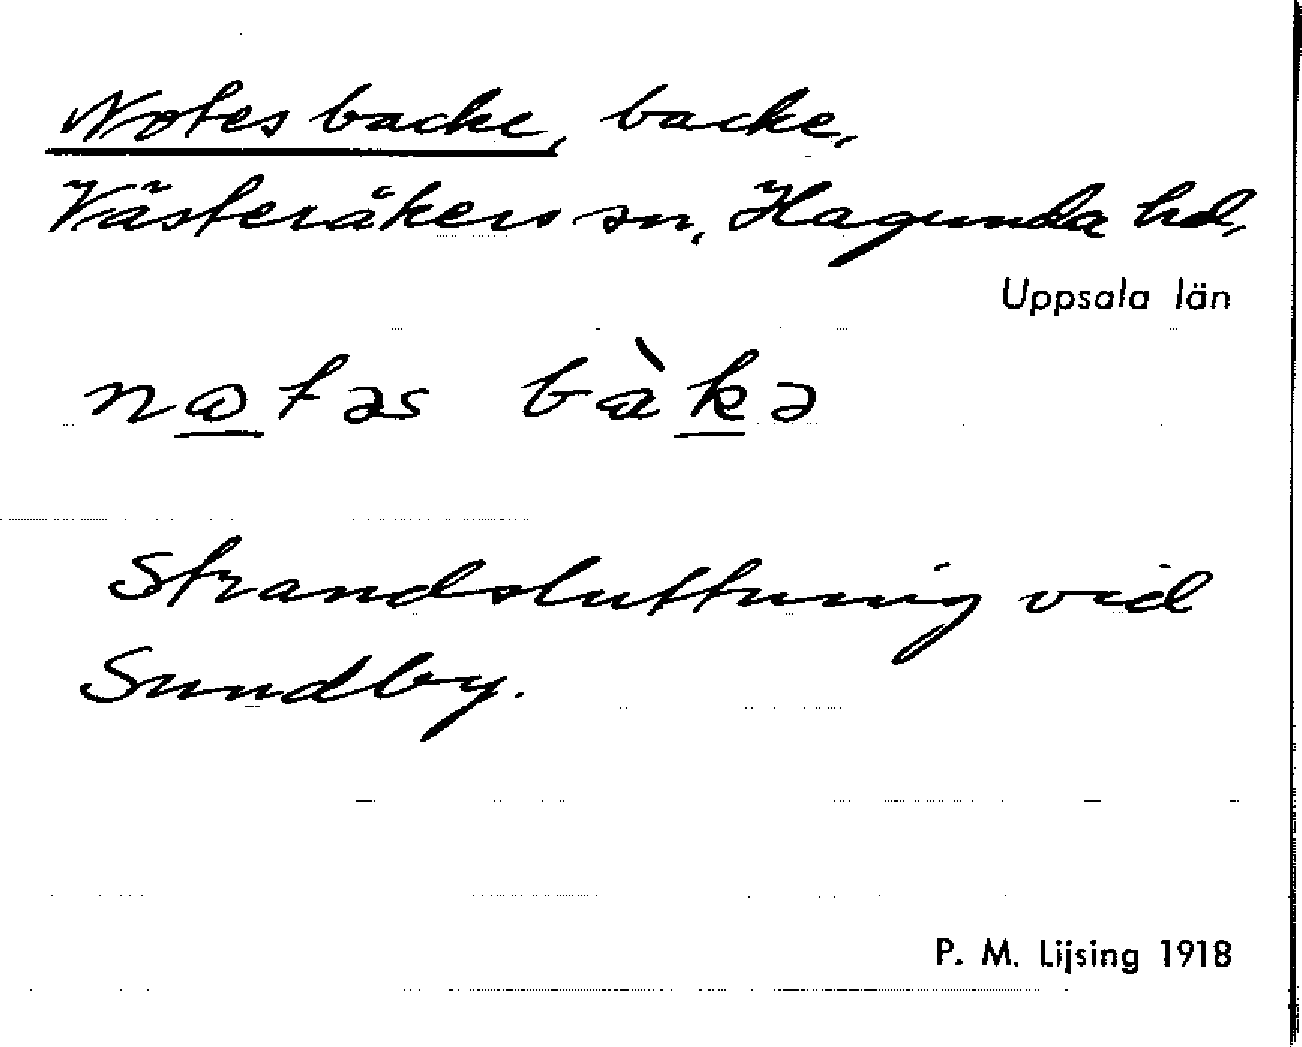 Notes backe, backe,
Västeråkers sn, Hagunda hd,
Uppsala län
nɷtəs bàkə
Strandsluttning vid
Sundby.
P. M. Lijsing 1918